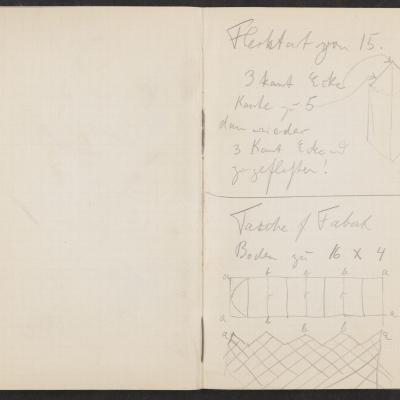 von 15.
3 kant Ecke
Kante zu 5
dann wieder
3 Kant Ecke
zu geflochten!
Tasche f Tabak
Boden zu 16 x 4
a b c b a
a b b a
a a